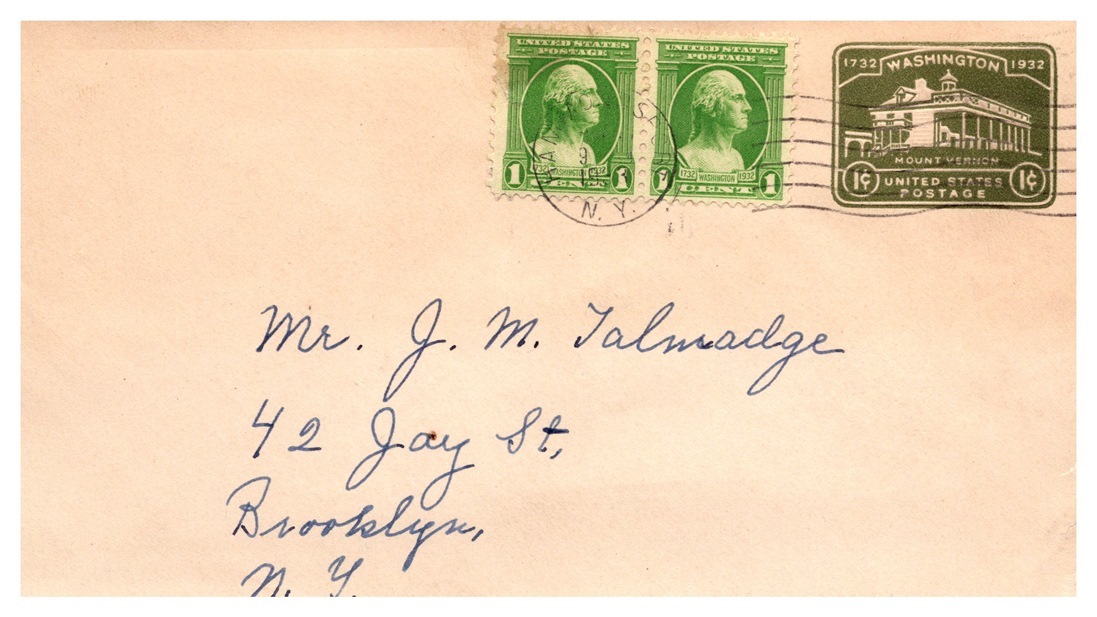 UNITED STATES
POSTAGE
1 CENTS 1
1732 WASHINGTON 1932
UNITED STATES
POSTAGE
1732 WASHINGTON 1932
1 CENT 1
N. Y.
1732 WASHINGTON 1932
MOUNT VERNON
1¢ UNITED STATES 1¢
POSTAGE
Mr. J. M. Talmadge
42 Jay St,
Brooklyn,
N. Y.